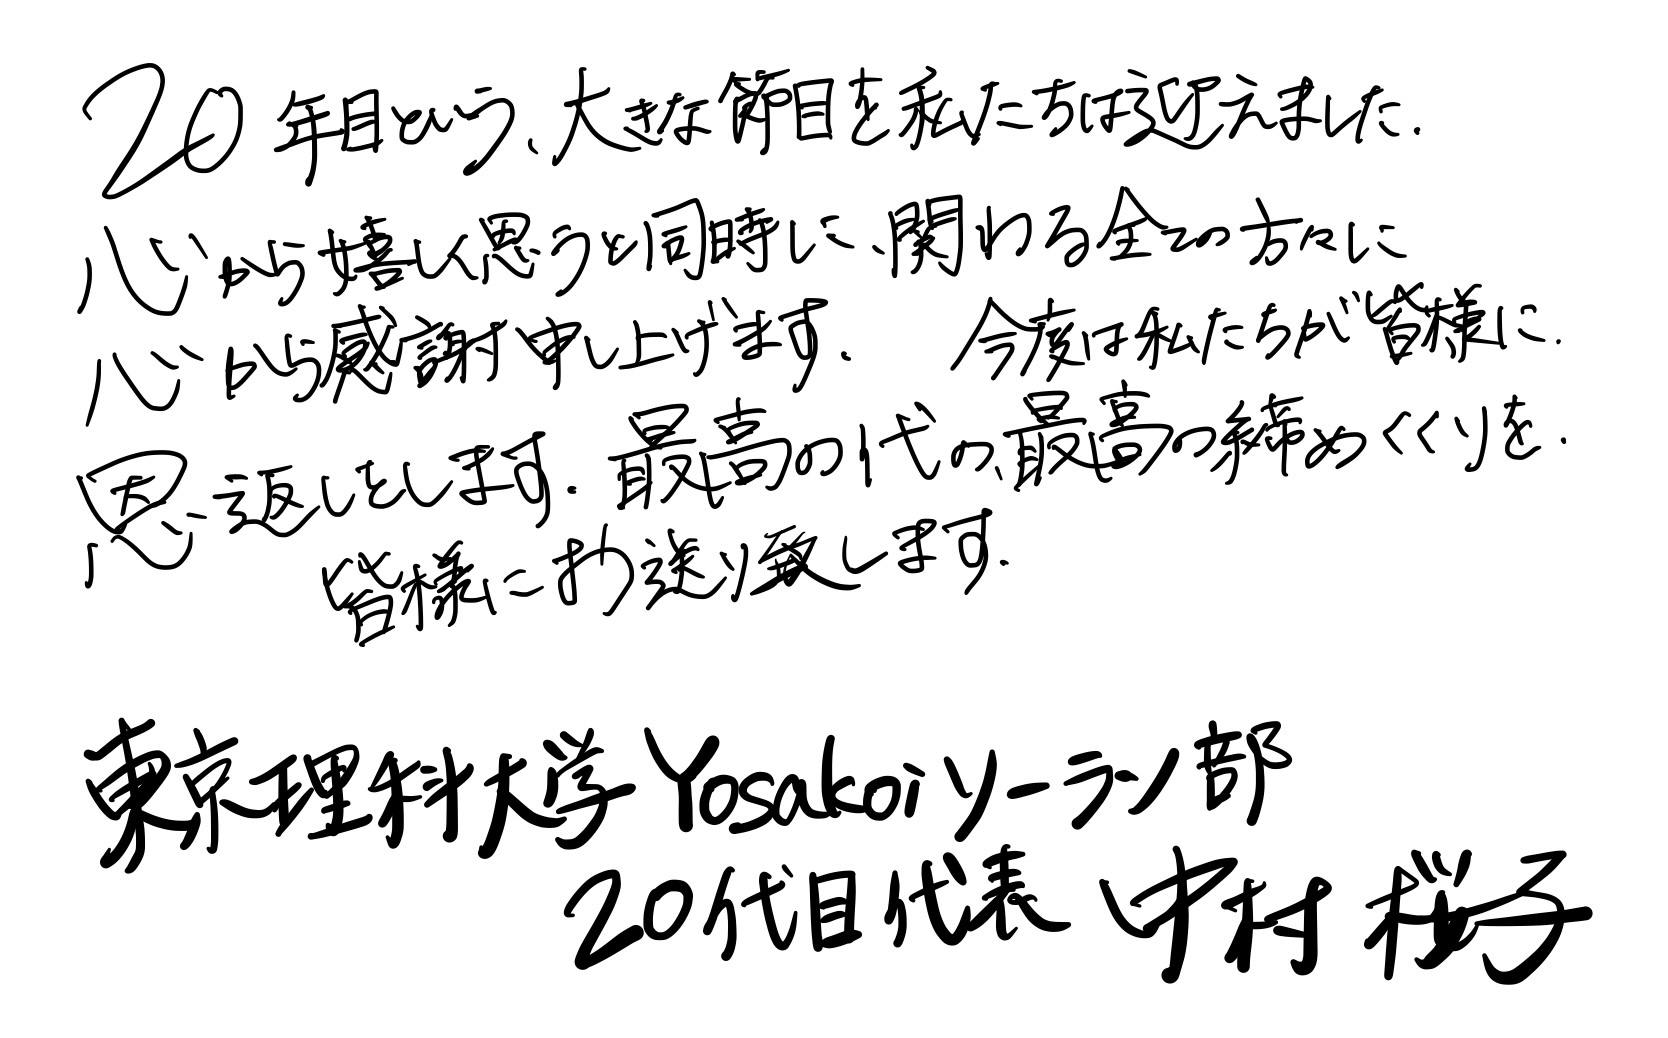 20年目という、大きな節目を私たちは迎えました.
心から嬉しく思うと同時に、関わる全ての方々に
心から感謝申し上げます. 今度は私たちが皆様に.
恩返しをします. 最高の代の、最高の締めくくりを.
皆様にお送り致します.
東京理科大学Yosakoiソーラン部
20代目代表 中村 桜子